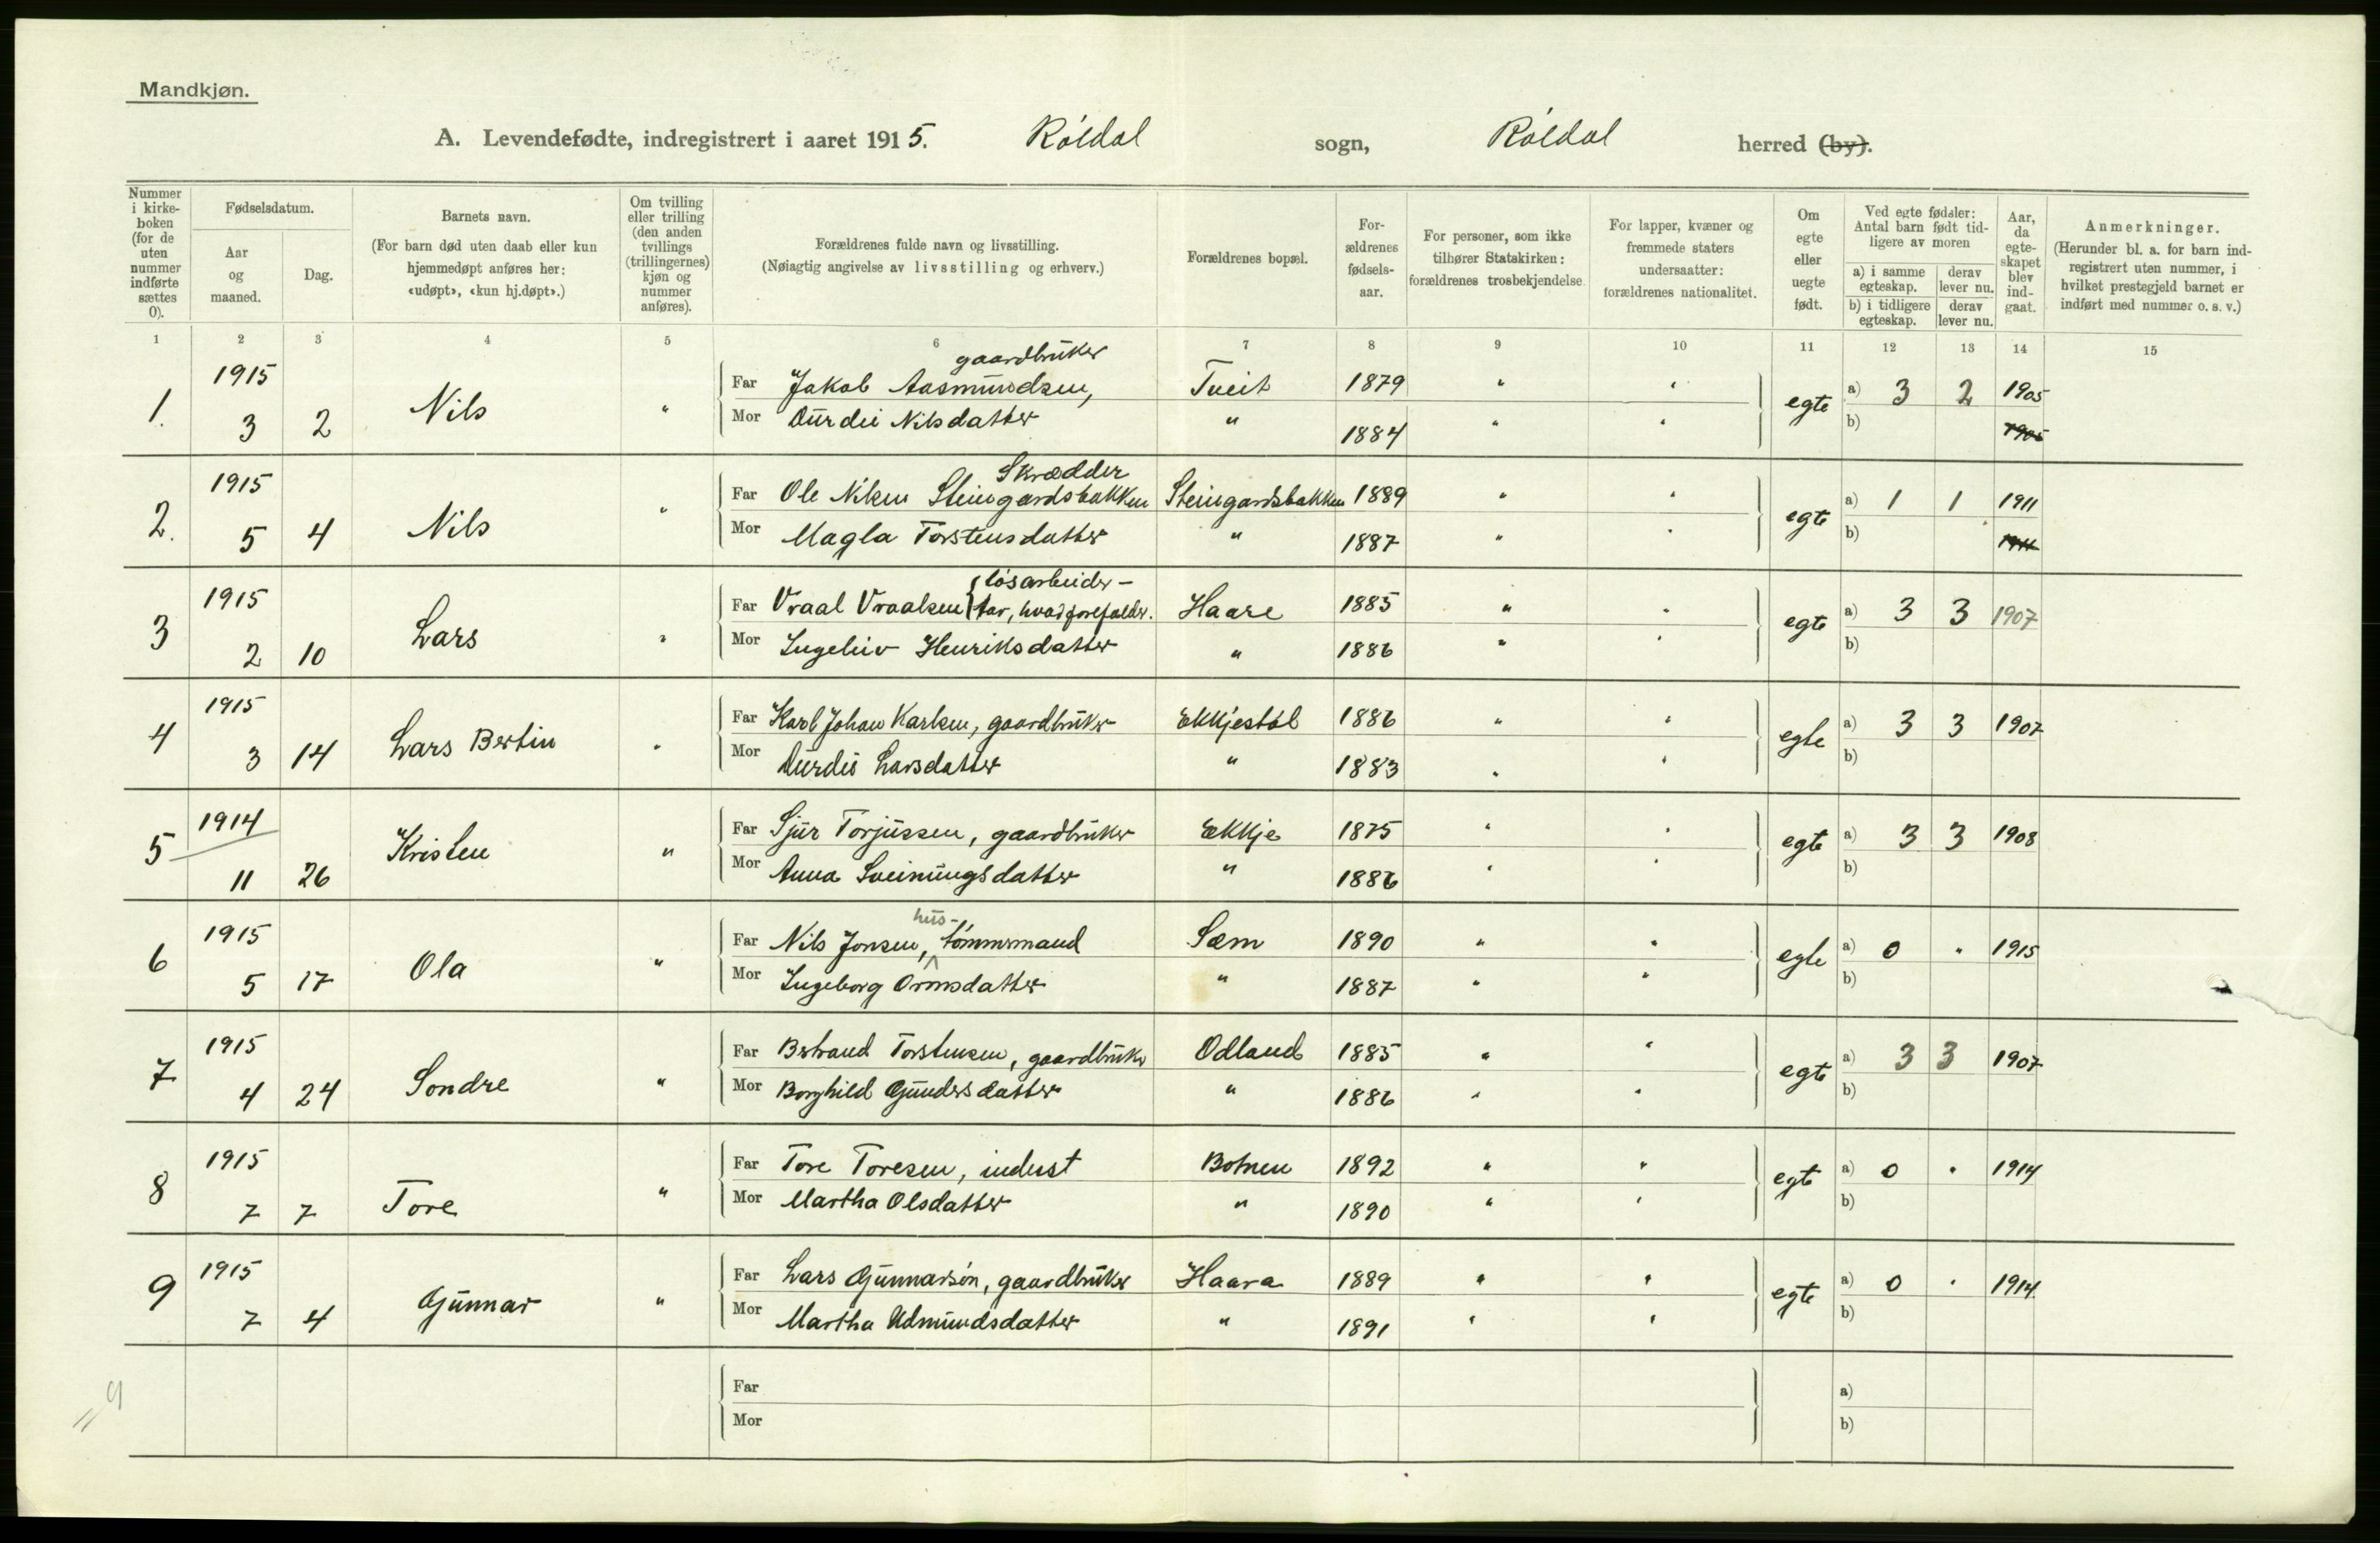 Mandkjøn.
A. Levendefødte, indregistrert i aaret 1915. Róldal sogn, Róldal herred (by).
Nummer i kirkeboken (for de uten nummer indførte sættes 0).
Fødselsdatum.
Aar og maaned.
Dag.
Barnets navn.
(For barn død uten daab eller kun hjemmedøpt anføres her: «udøpt», «kun hj.døpt».)
Om tvilling eller trilling (den anden tvillings (trillingernes) kjøn og nummer anføres).
Forældrenes fulde navn og livsstilling.
(Nøiagtig angivelse av livsstilling og erhverv.)
Forældrenes bopæl.
Forældrenes fødselsaar.
For personer, som ikke tilhører Statskirken: forældrenes trosbekjendelse.
For lapper, kvæner og fremmede staters undersaatter: forældrenes nationalitet.
Om egte eller uegte født.
Ved egte fødsler: Antal barn født tidligere av moren
a) i samme egteskap. derav lever nu.
b) i tidligere egteskap. derav lever nu.
Aar, da egteskapet blev indgaat.
Anmerkninger.
(Herunder bl. a. for barn indregistrert uten nummer, i hvilket prestegjeld barnet er indført med nummer o. s. v.)
1 2 3 4 5 6 7 8 9 10 11 12 13 14 15
1. 1915 3 2 Nils " Far Jakob Aasmundsen, gaardbruker Tveit 1879 " " egte a) 3 2 1905
Mor Durdei Nilsdatter " 1884 " " b) 1905
2. 1915 5 4 Nils " Far Ole Nilsen Steingardsbakken Skrædder Steingardsbakken 1889 " " egte a) 1 1 1911
Mor Magla Torstensdatter " 1887 " " b) 1911
3 1915 2 10 Lars " Far Vraal Vraalsen {lósarbeider – tar, hvad forefalder. Haare 1885 " " egte a) 3 3 1907
Mor Ingeliv Henriksdatter " 1886 " " b)
4 1915 3 14 Lars Bertin " Far Karl Johan Karlsen, gaardbruker Ekkjestól 1886 " " egte a) 3 3 1907
Mor Durdei Larsdatter " 1883 " " b)
5 1914 11 26 Kristen " Far Sjur Torjussen, gaardbruker Ekkje 1875 " " egte a) 3 3 1908
Mor Anna Sveinungsdatter " 1886 " " b)
6 1915 5 17 Ola " Far Nils Jonsen, hus-tómmermand Sæm 1890 " " egte a) 0 " 1915
Mor Ingeborg Ormsdatter " 1887 " " b)
7 1915 4 24 Sondre " Far Bertrand Torstensen, gaardbruker Odland 1885 " " egte a) 3 3 1907
Mor Borghild Gundersdatter " 1886 " " b)
8 1915 7 7 Tore " Far Tore Toresen, inderst Botnen 1892 " " egte a) 0 " 1914
Mor Martha Olsdatter " 1890 " " b)
9 1915 7 4 Gunnar " Far Lars Gunnarsón, gaardbruker Haara 1889 " " egte a) 0 " 1914
Mor Martha Udmundsdatter " 1891 " " b)
Far a)
Mor b)
9